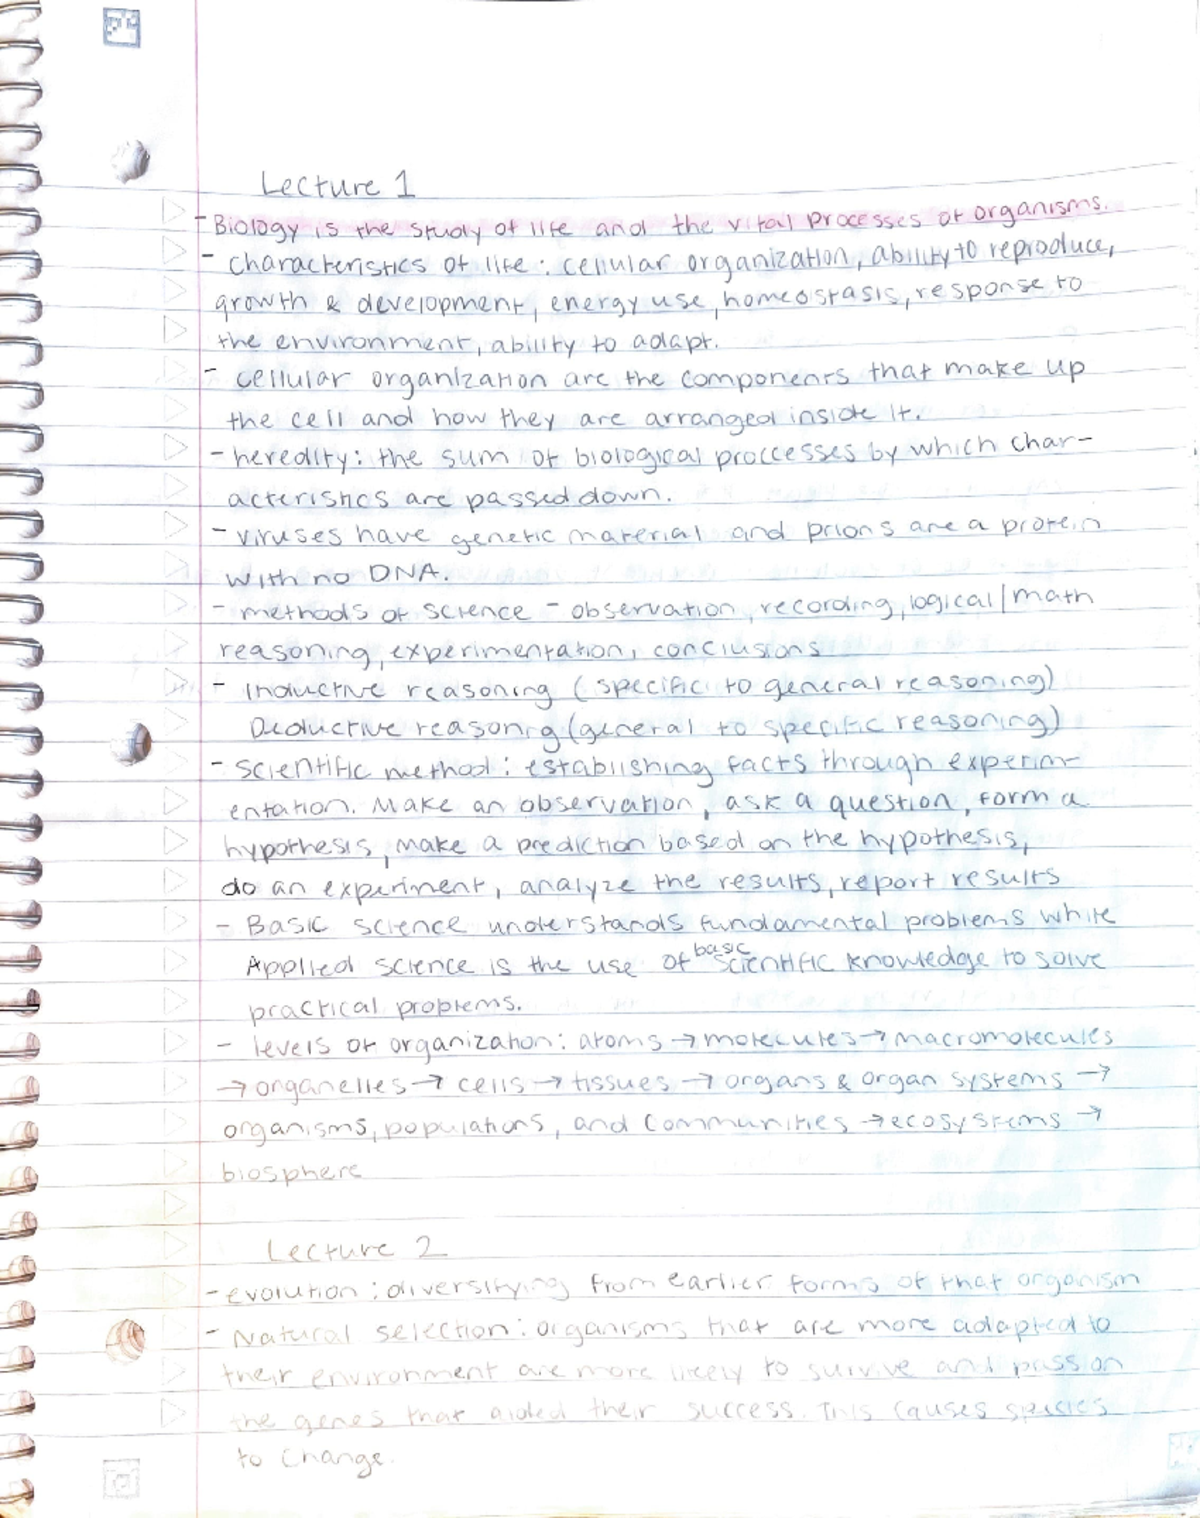 Lecture 1
- Biology is the study of life and the vital processes of organisms.
- characteristics of life: cellular organization, ability to reproduce,
growth & development, energy use, homeostasis, response to
the environment, ability to adapt.
- cellular organization are the components that make up
the cell and how they are arranged inside it.
- heredity: the sum of biological proccesses by which char-
acteristics are passed down.
- viruses have genetic material and prions are a protein
with no DNA.
- methods of science - observation, recording, logical/math
reasoning, experimentation, conclusions
- Inductive reasoning (specific to general reasoning)
Deductive reasoning (general to specific reasoning)
- scientific method: establishing facts through experim-
entation. Make an observation, ask a question, form a
hypothesis, make a prediction based on the hypothesis,
do an experiment, analyze the results, report results
- Basic science understands fundamental problems while
Applied science is the use of basic scientific knowledge to solve
practical problems.
- levels of organization: atoms → molecules → macromolecules
→ organelles → cells → tissues → organs & organ systems →
organisms, populations, and communities → ecosystems →
biosphere
Lecture 2
- evolution: diversifying from earlier forms of that organism
- Natural selection: organisms that are more adapted to
their environment are more likely to survive and pass on
the genes that aided their success. This causes species
to change.